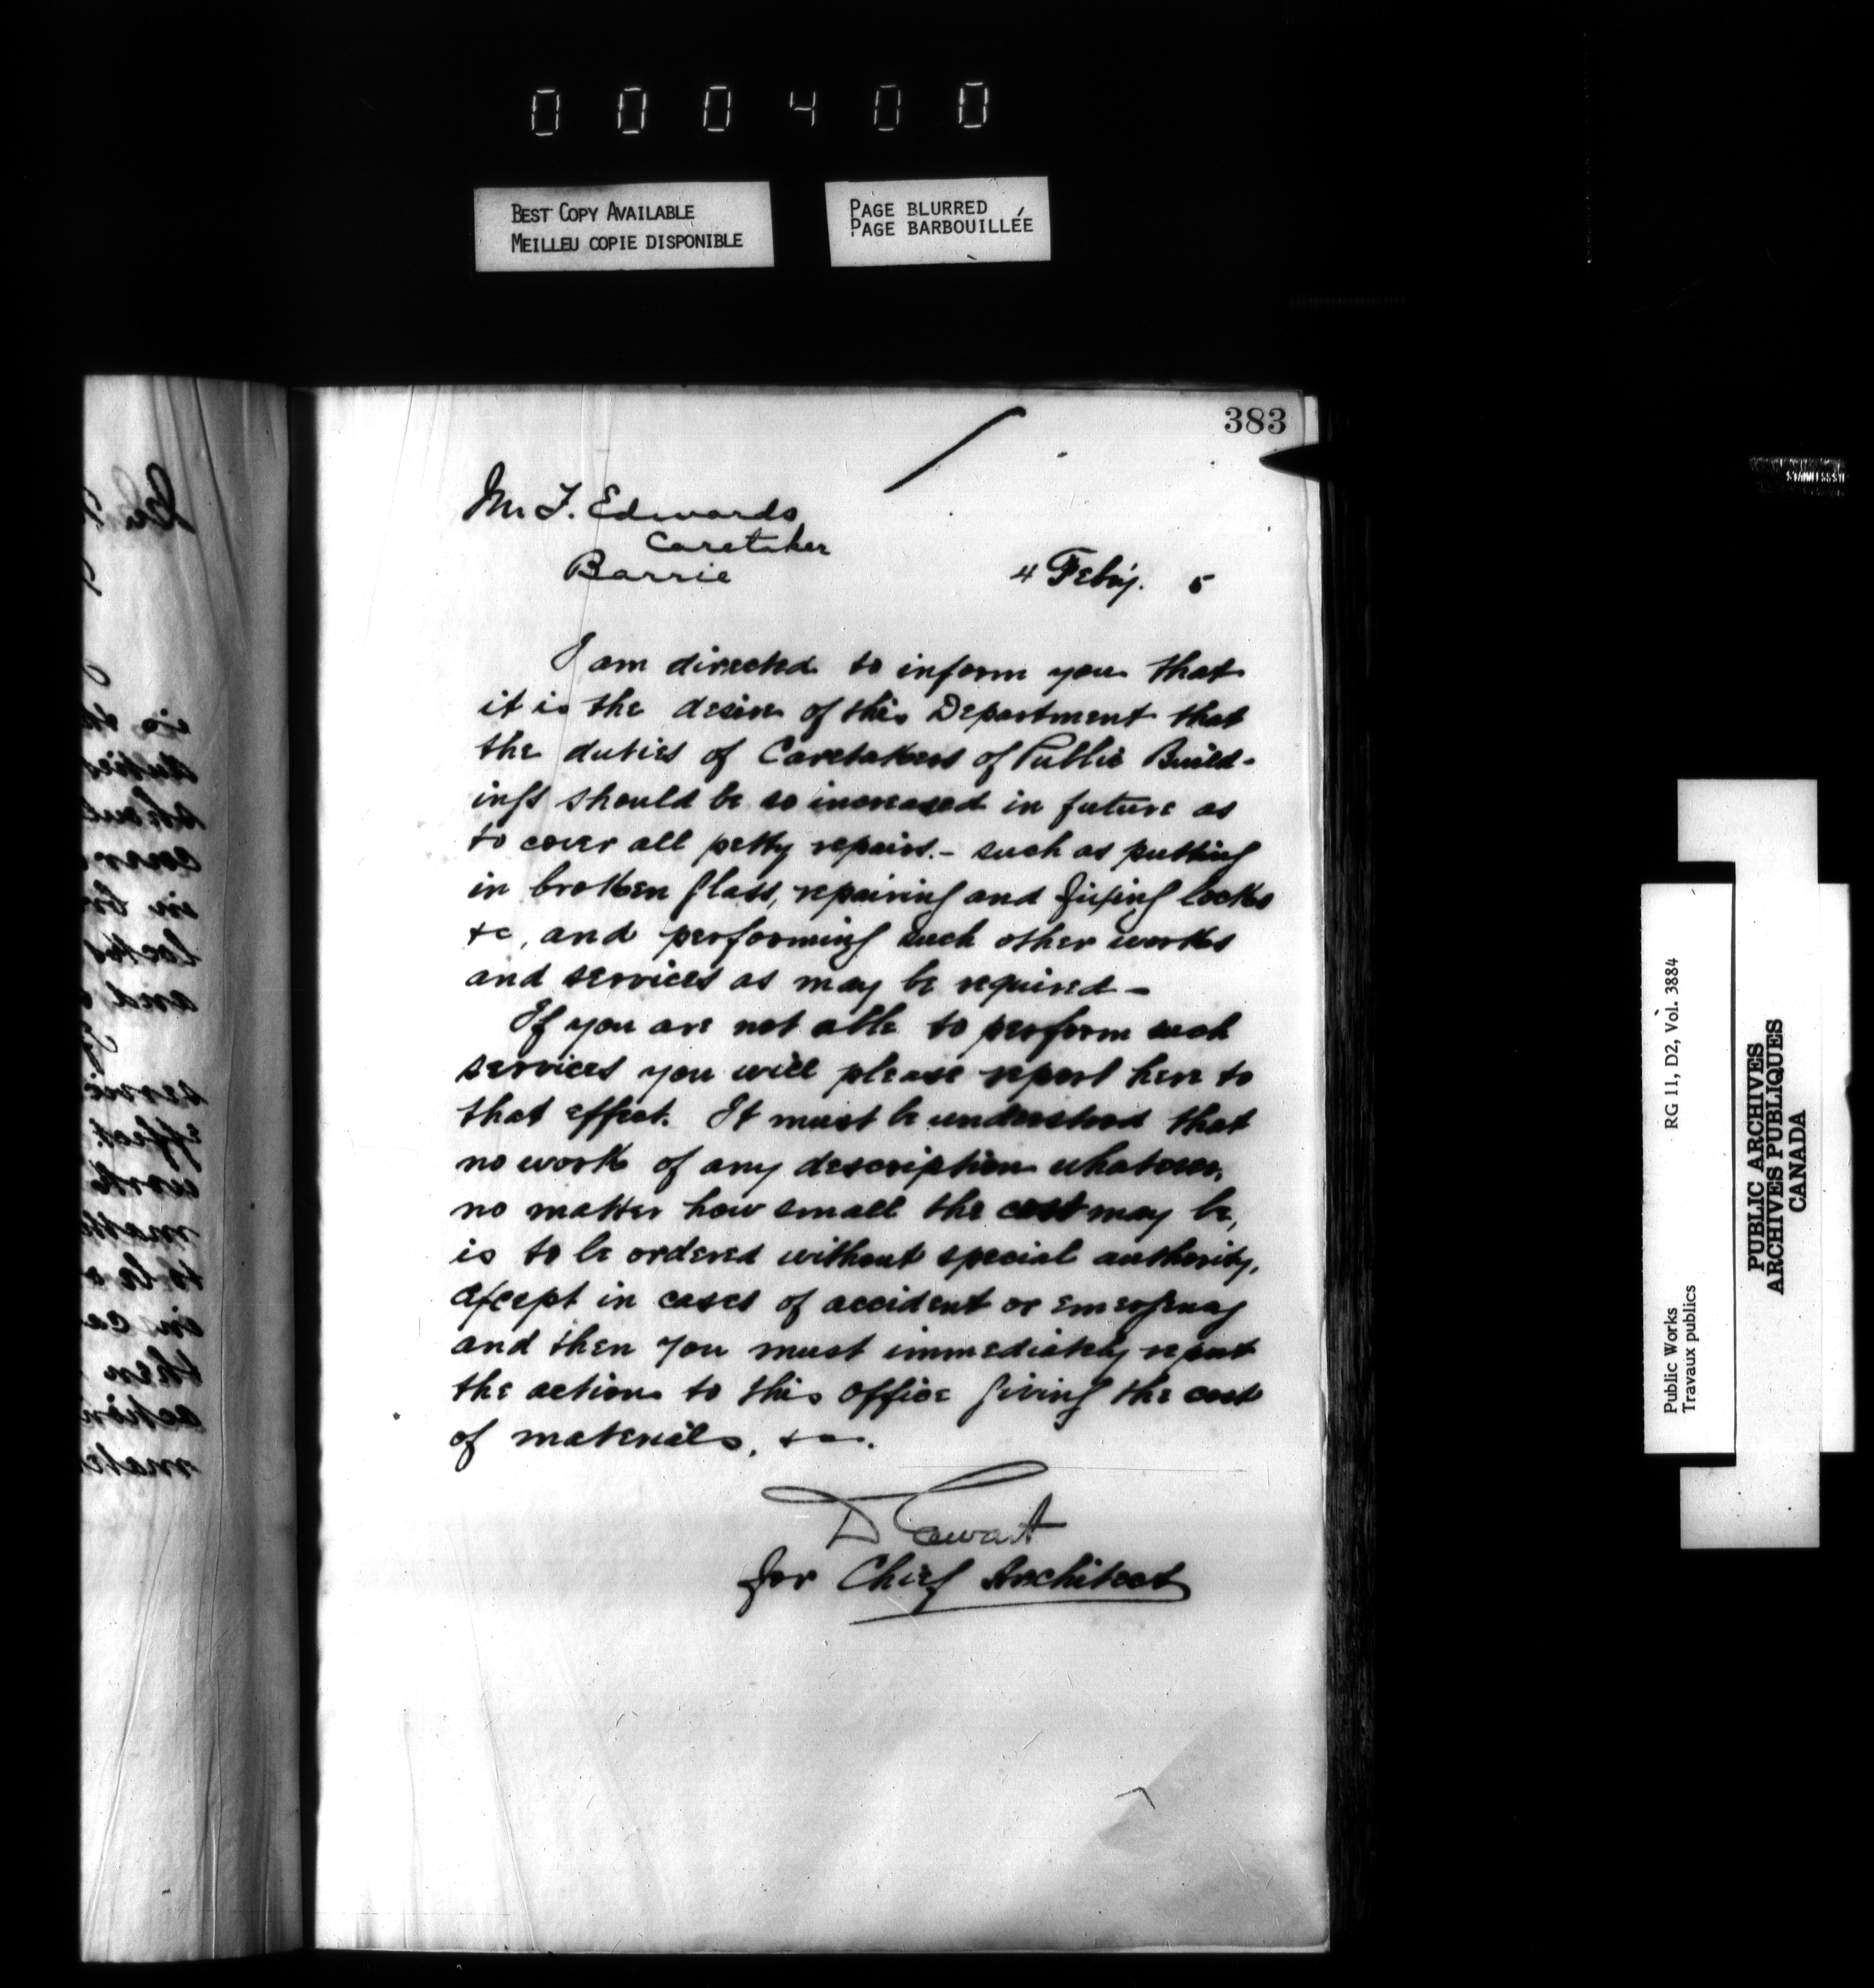 000400
BEST COPY AVAILABLE
MEILLEU COPIE DISPONIBLE
PAGE BLURRED
PAGE BARBOUILLÉE
383
Mr F. Edwards
Caretaker
Barrie
4 Feby. 5
I am directed to inform you that
it is the desire of this Department that
the duties of Caretakers of Public Build-
ings should be so increased in future as
to cover all petty repairs.- such as putting
in broken glass, repairing and fixing locks
&c, and performing such other works
and services as may be required -
If you are not able to perform such
services you will please report here to
that effect. It must be understood that
no work of any description whatever,
no matter how small the cost may be,
is to be ordered without special authority,
except in cases of accident or emergency
and then you must immediately report
the action to this office giving the cost
of materials, &c.
D Ewart
for Chief Architect
Public Works
Travaux publics
RG 11, D2, Vol. 3884
PUBLIC ARCHIVES
ARCHIVES PUBLIQUES
CANADA